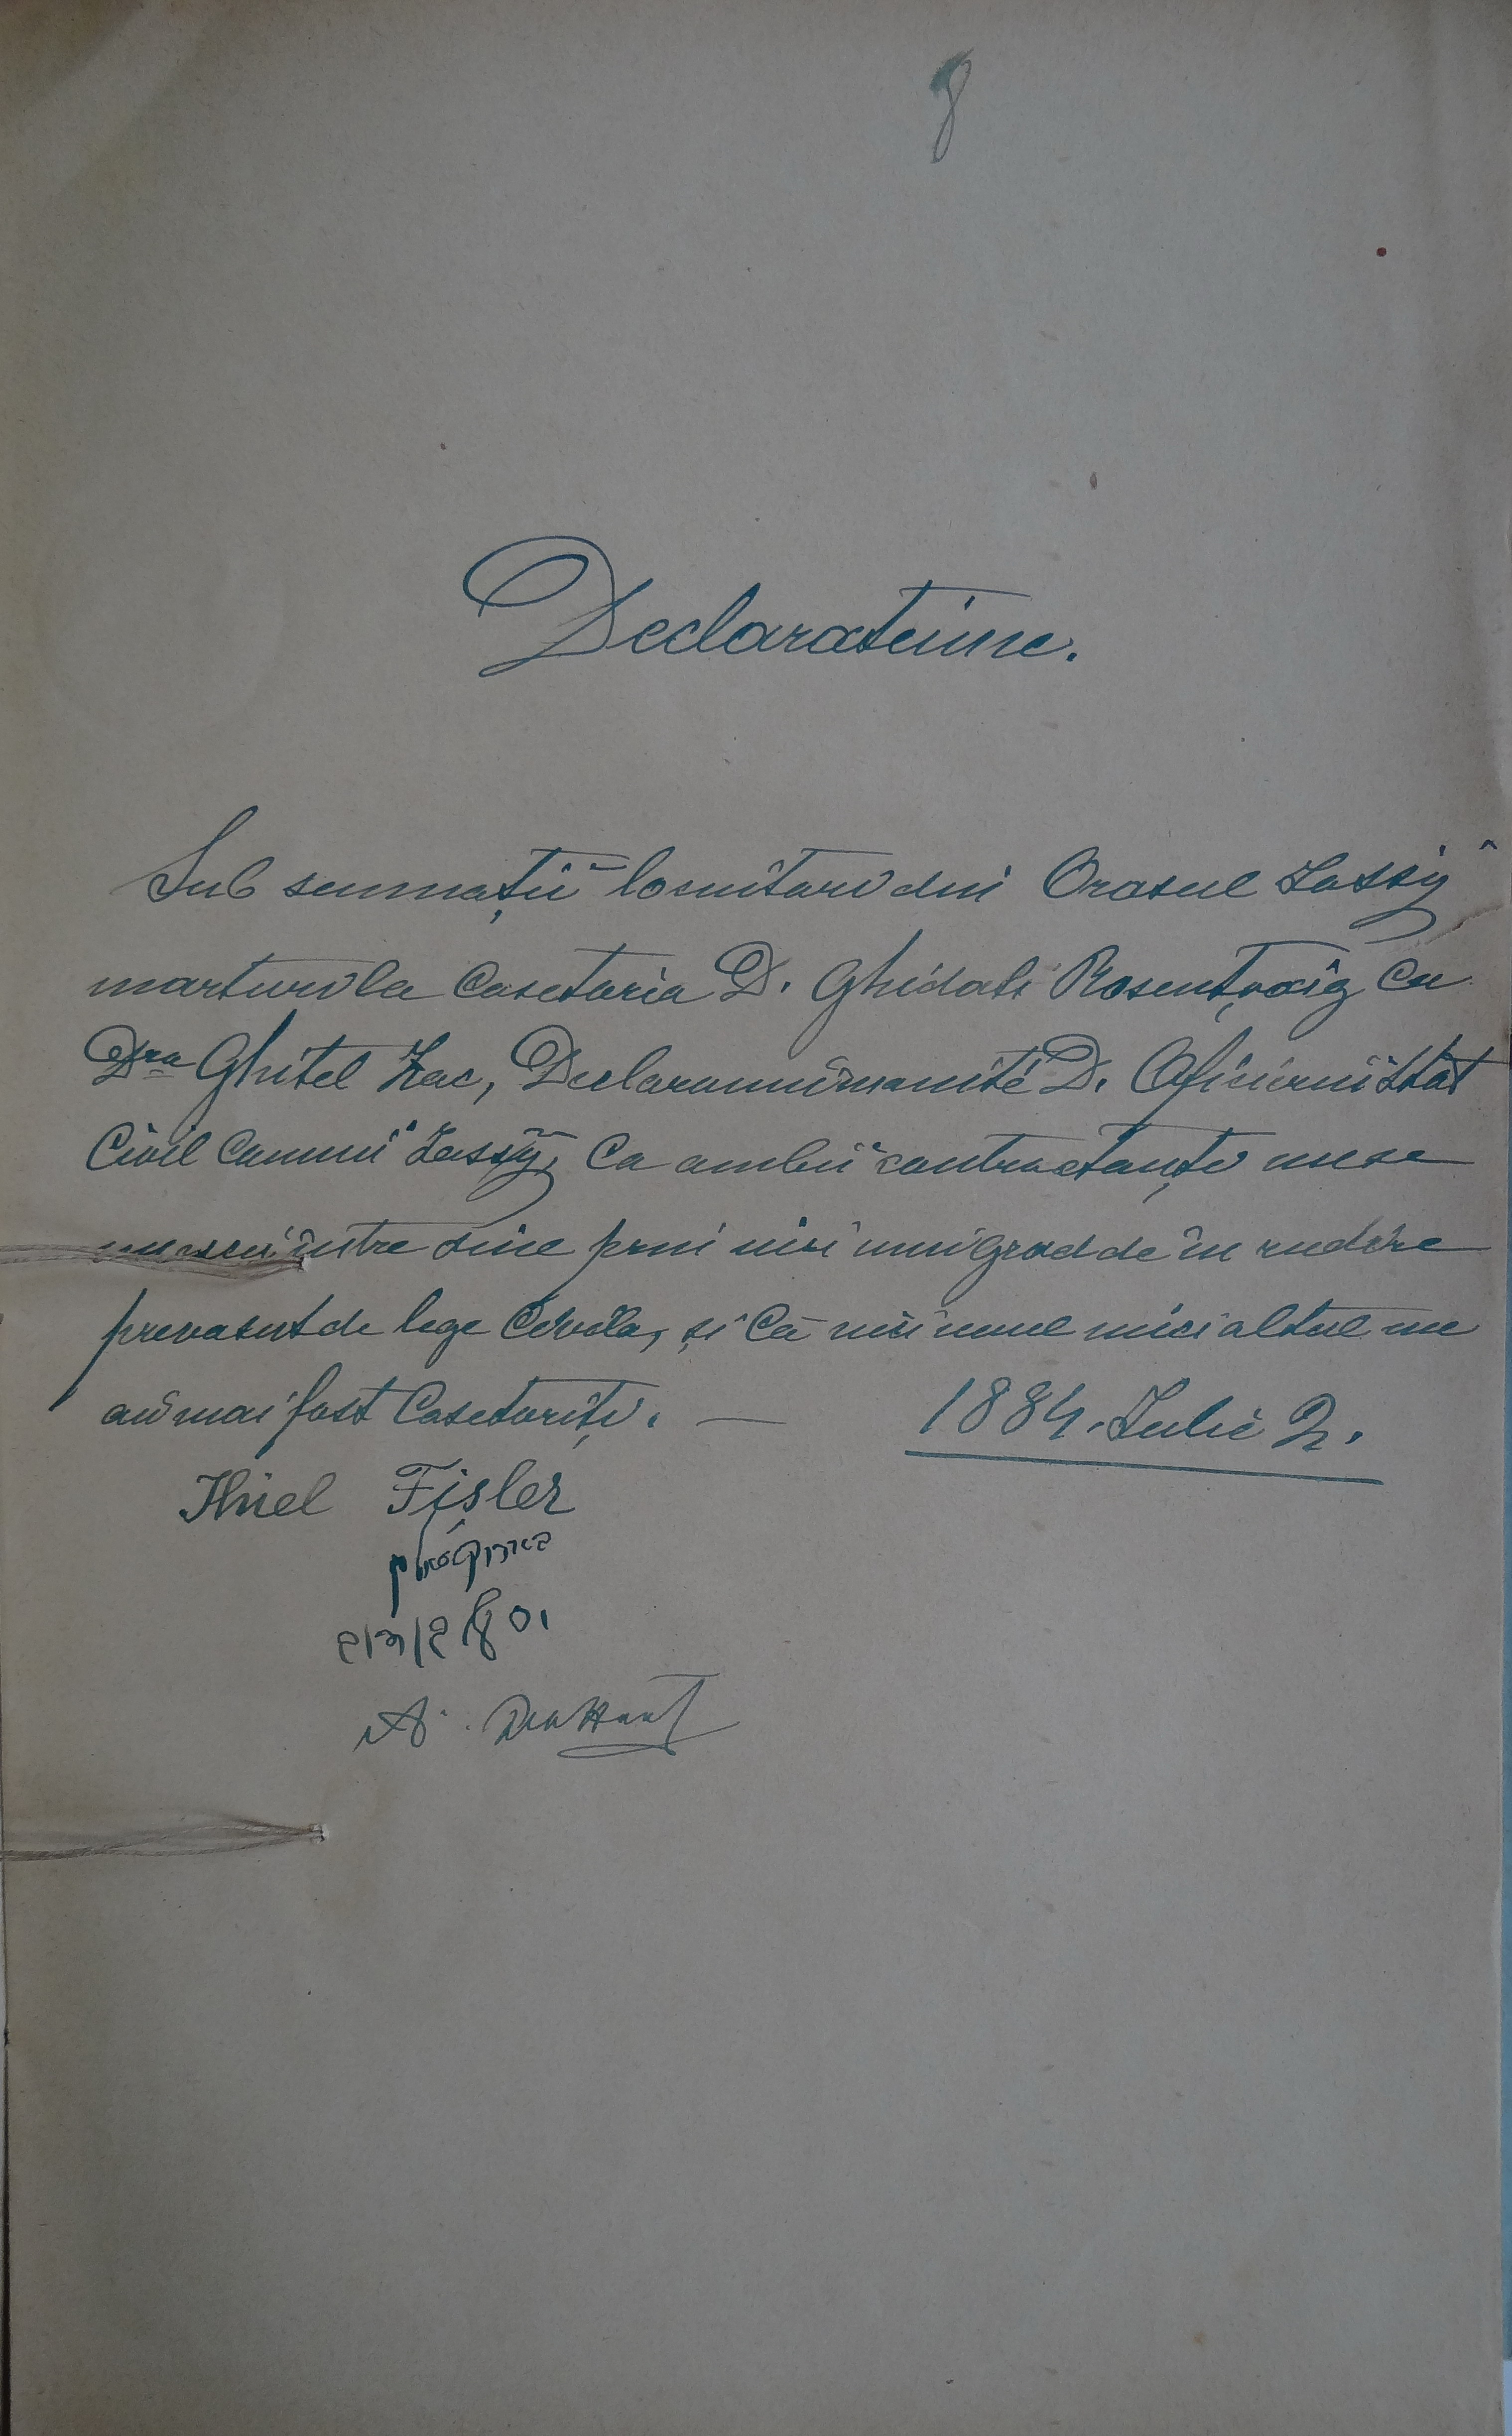 8
Declarateiune.
Sub semnații locuitari din Orasul Iassÿ
marturi la Casetoria D. Ghidali Rosenţvaig Cu
Dra Ghitel Zac, Declaram înnainté D. Oficierui Stat
Civil Comuni Iassÿ, Ca ambii contractanți nu se
între sine prin nici unui Grad de în rudire
prevasut de lege Civila, și Că nici unul nici altul nu
aŭ mai fost Casetoriți. — 1884. Iulie 2.
Ihiel Fisler
A.